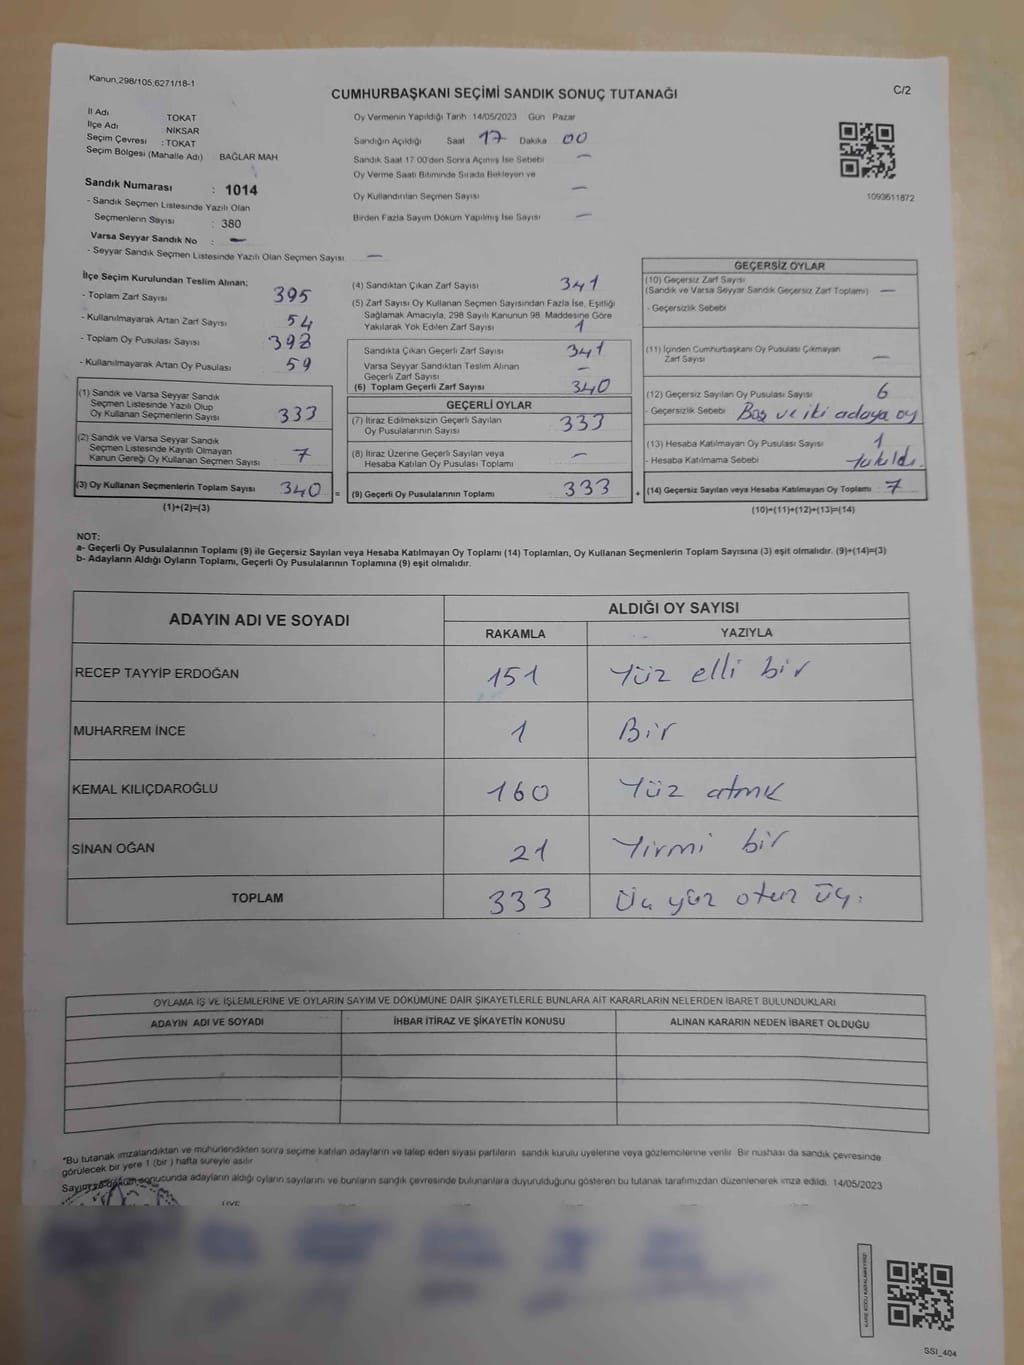 Kanun.298/105,6271/18-1
CUMHURBAŞKANI SEÇİMİ SANDIK SONUÇ TUTANAĞI
C/2
İl Adı TOKAT
İlçe Adı NİKSAR
Seçim Çevresi : TOKAT
Seçim Bölgesi (Mahalle Adı) BAĞLAR MAH
Sandık Numarası : 1014
- Sandık Seçmen Listesinde Yazılı Olan
Seçmenlerin Sayısı : 380
Varsa Seyyar Sandık No : -
- Seyyar Sandık Seçmen Listesinde Yazılı Olan Seçmen Sayısı -
Oy Vermenin Yapıldığı Tarih 14/05/2023 Gün Pazar
Sandığın Açıldığı Saat 17 Dakika 00
Sandık Saat 17 00'den Sonra Açılmış İse Sebebi -
Oy Verme Saati Bitiminde Sırada Bekleyen ve
Oy Kullandırılan Seçmen Sayısı -
Birden Fazla Sayım Döküm Yapılmış İse Sayısı -
1093611872
İlçe Seçim Kurulundan Teslim Alınan:
- Toplam Zarf Sayısı 395
- Kullanılmayarak Artan Zarf Sayısı 54
- Toplam Oy Pusulası Sayısı 398
- Kullanılmayarak Artan Oy Pusulası 59
(1) Sandık ve Varsa Seyyar Sandık
Seçmen Listesinde Yazılı Olup
Oy Kullanan Seçmenlerin Sayısı 333
(2) Sandık ve Varsa Seyyar Sandık
Seçmen Listesinde Kayıtlı Olmayan
Kanun Gereği Oy Kullanan Seçmen Sayısı 7
(3) Oy Kullanan Seçmenlerin Toplam Sayısı 340 =
(1)+(2)=(3)
(4) Sandıktan Çıkan Zarf Sayısı 341
(5) Zarf Sayısı Oy Kullanan Seçmen Sayısından Fazla İse, Eşitliği
Sağlamak Amacıyla, 298 Sayılı Kanunun 98. Maddesine Göre
Yakılarak Yok Edilen Zarf Sayısı 1
Sandıkta Çıkan Geçerli Zarf Sayısı 341
Varsa Seyyar Sandıktan Teslim Alınan
Geçerli Zarf Sayısı -
(6) Toplam Geçerli Zarf Sayısı 340
GEÇERLİ OYLAR
(7) İtiraz Edilmeksizin Geçerli Sayılan
Oy Pusulalarının Sayısı 333
(8) İtiraz Üzerine Geçerli Sayılan veya
Hesaba Katılan Oy Pusulası Toplamı -
(9) Geçerli Oy Pusulalarının Toplamı 333 +
GEÇERSİZ OYLAR
(10) Geçersiz Zarf Sayısı
(Sandık ve Varsa Seyyar Sandık Geçersiz Zarf Toplamı) -
- Geçersizlik Sebebi
(11) İçinden Cumhurbaşkanı Oy Pusulası Çıkmayan
Zarf Sayısı -
(12) Geçersiz Sayılan Oy Pusulası Sayısı 6
- Geçersizlik Sebebi Boş ve iki adaya oy
(13) Hesaba Katılmayan Oy Pusulası Sayısı 1
- Hesaba Katılmama Sebebi
(14) Geçersiz Sayılan veya Hesaba Katılmayan Oy Toplamı 7
(10)+(11)+(12)+(13)=(14)
NOT:
a- Geçerli Oy Pusulalarının Toplamı (9) ile Geçersiz Sayılan veya Hesaba Katılmayan Oy Toplamı (14) Toplamları, Oy Kullanan Seçmenlerin Toplam Sayısına (3) eşit olmalıdır. (9)+(14)=(3)
b- Adayların Aldığı Oyların Toplamı, Geçerli Oy Pusulalarının Toplamına (9) eşit olmalıdır.
ADAYIN ADI VE SOYADI ALDIĞI OY SAYISI
RAKAMLA YAZIYLA
RECEP TAYYİP ERDOĞAN 151 Yüz elli bir
MUHARREM İNCE 1 Bir
KEMAL KILIÇDAROĞLU 160 Yüz atmış
SİNAN OĞAN 21 Yirmi bir
TOPLAM 333 Üç yüz otuz üç.
OYLAMA İŞ VE İŞLEMLERİNE VE OYLARIN SAYIM VE DÖKÜMÜNE DAİR ŞİKAYETLERLE BUNLARA AİT KARARLARIN NELERDEN İBARET BULUNDUKLARI
ADAYIN ADI VE SOYADI İHBAR İTİRAZ VE ŞİKAYETİN KONUSU ALINAN KARARIN NEDEN İBARET OLDUĞU
*Bu tutanak imzalandıktan ve mühürlendikten sonra seçime katılan adayların ve talep eden siyasi partilerin sandık kurulu üyelerine veya gözlemcilerine verilir. Bir nüshası da sandık çevresinde
görülecek bir yere 1 (bir) hafta süreyle asılır
sonucunda adayların aldığı oyların sayılarını ve bunların sandık çevresinde bulunanlara duyurulduğunu gösteren bu tutanak tarafımızdan düzenlenerek imza edildi. 14/05/2023
KARE KODU KARALAMAYINIZ!
SSI_404